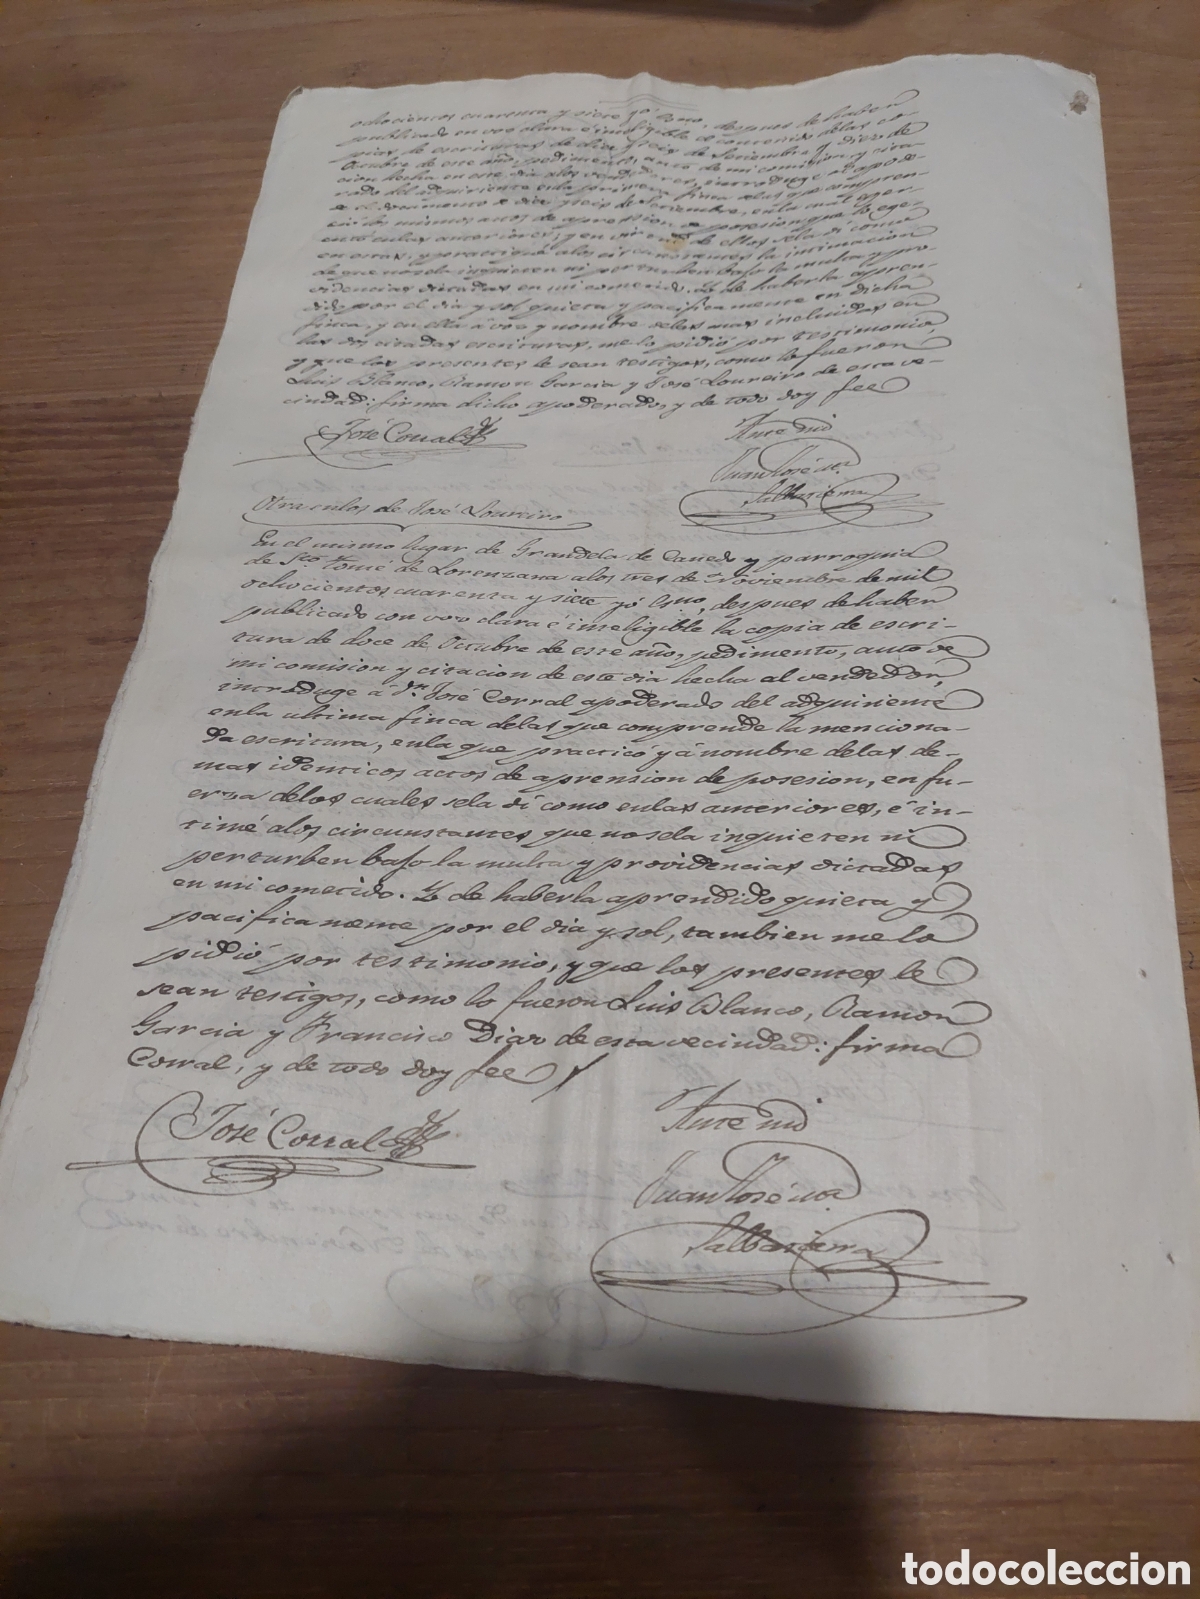 ochocientos cuarenta y siete yó Esno, despues de haber
publicado en voz clara é inteligible el contenido delas co-
pias de escrituras de diez y seis de Setiembre y diez de
Octubre de este año, pedimento, auto de mi comision, y cita-
cion hecha en este dia alos vendedores, introduge al apode-
rado del adquiriente enla primera finca delas que compren-
de el documento de diez y seis de Setiembre, enla cual ejer-
ció los mismos actos de aprension de posesion que lo ege-
cutó enlas anteriores; y en virtud de ellos sela dí como
en estas, y practiqué alos circunstantes la intimacion
de que nosela inquieten ni perturben bajo la multa y pro-
videncias dictadas en mi cometido. Y de haberla apren-
dido por el dia y sol quieta y pacificamente en dicha
finca, y en ella á voz y nombre delas mas incluidas en
las dos citadas escrituras, me lo pidió por testimonio,
y que los presentes le sean testigos, como lo fueron
Luis Blanco, Ramon Garcia y José Loureiro de esta ve-
cindad: firma dicho apoderado, y de todo doy fee
José Corral
Ante mi
Juan José
Salbatierra
Otra enlos de José Loureiro
En el mismo lugar de Grandela de Canedo y parroquia
de Sto. Tomé de Lorenzana alos tres de Noviembre de mil
ochocientos cuarenta y siete yó Esno, despues de haber
publicado con voz clara é inteligible la copia de escri-
tura de doce de Octubre de este año, pedimento, auto de
mi comision y citacion de este dia hecha al vendedor,
introduge á Dn. José Corral apoderado del adquiriente
enla ultima finca delas que comprende la menciona-
da escritura, enla que practicó y á nombre delas de-
mas identicos actos de aprension de posesion, en fu-
erza delos cuales sela dí como enlas anteriores, é in-
timé alos circunstantes que nosela inquieten ni
perturben bajo la multa y providencias dictadas
en mi cometido. Y de haberla aprendido quieta y
pacificamente por el dia y sol, tambien me lo
pidió por testimonio, y que los presentes le
sean testigos, como lo fueron Luis Blanco, Ramon
Garcia y Francisco Diaz de esta vecindad: firma
Corral, y de todo doy fee
José Corral
Ante mi
Juan José
Salbatierra
todocoleccion